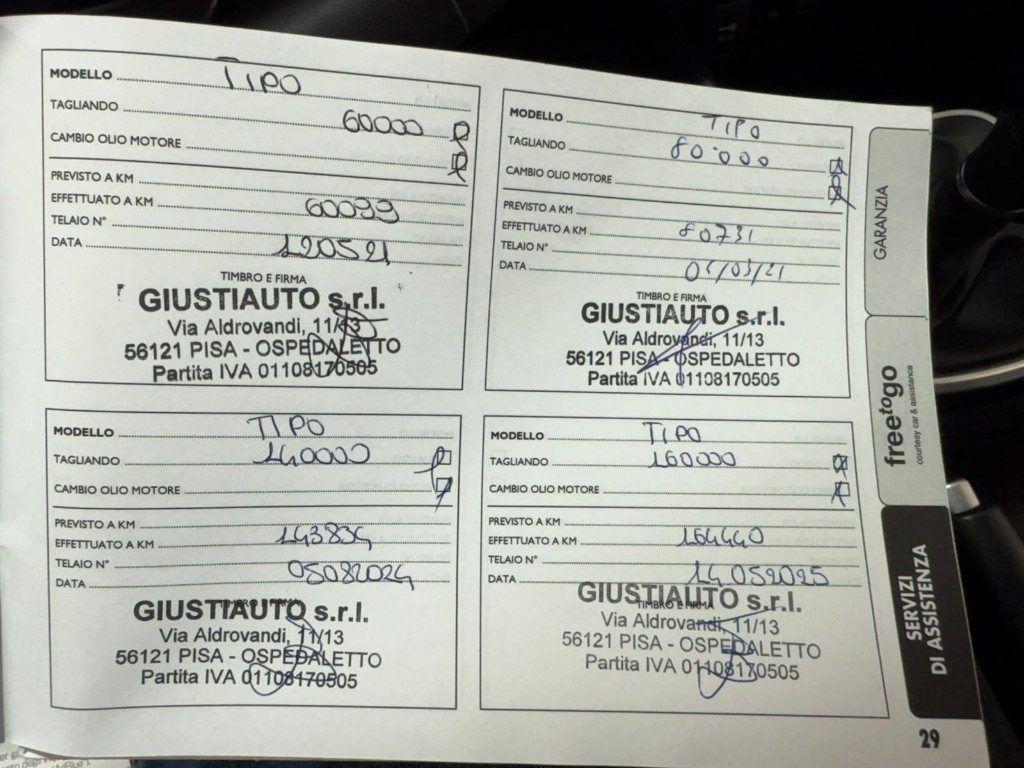 MODELLO TIPO
TAGLIANDO 60000
CAMBIO OLIO MOTORE
PREVISTO A KM
EFFETTUATO A KM 60099
TELAIO N°
DATA 120521
TIMBRO E FIRMA
GIUSTIAUTO s.r.l.
Via Aldrovandi, 11/13
56121 PISA - OSPEDALETTO
Partita IVA 01108170505
MODELLO TIPO
TAGLIANDO 80.000
CAMBIO OLIO MOTORE
PREVISTO A KM
EFFETTUATO A KM 80731
TELAIO N°
DATA
TIMBRO E FIRMA
GIUSTIAUTO s.r.l.
Via Aldrovandi, 11/13
56121 PISA - OSPEDALETTO
Partita IVA 01108170505
MODELLO TIPO
TAGLIANDO 140000
CAMBIO OLIO MOTORE
PREVISTO A KM
EFFETTUATO A KM 143834
TELAIO N°
DATA 05082024
TIMBRO E FIRMA
GIUSTIAUTO s.r.l.
Via Aldrovandi, 11/13
56121 PISA - OSPEDALETTO
Partita IVA 01108170505
MODELLO TIPO
TAGLIANDO 160000
CAMBIO OLIO MOTORE
PREVISTO A KM
EFFETTUATO A KM 164440
TELAIO N°
DATA 14052025
TIMBRO E FIRMA
GIUSTIAUTO s.r.l.
Via Aldrovandi, 11/13
56121 PISA - OSPEDALETTO
Partita IVA 01108170505
GARANZIA
freetogo
courtesy car & assistance
SERVIZI
DI ASSISTENZA
29